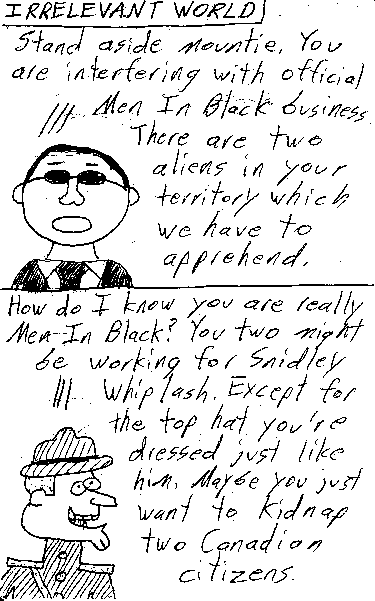 IRRELEVANT WORLD
Stand aside mountie. You
are interfering with official
Men In Black business.
There are two
aliens in your
territory which
we have to
apprehend.
How do I know you are really
Men In Black? You two might
be working for Snidley
Whiplash. Except for
the top hat you're
dressed just like
him. Maybe you just
want to kidnap
two Canadian
citizens.